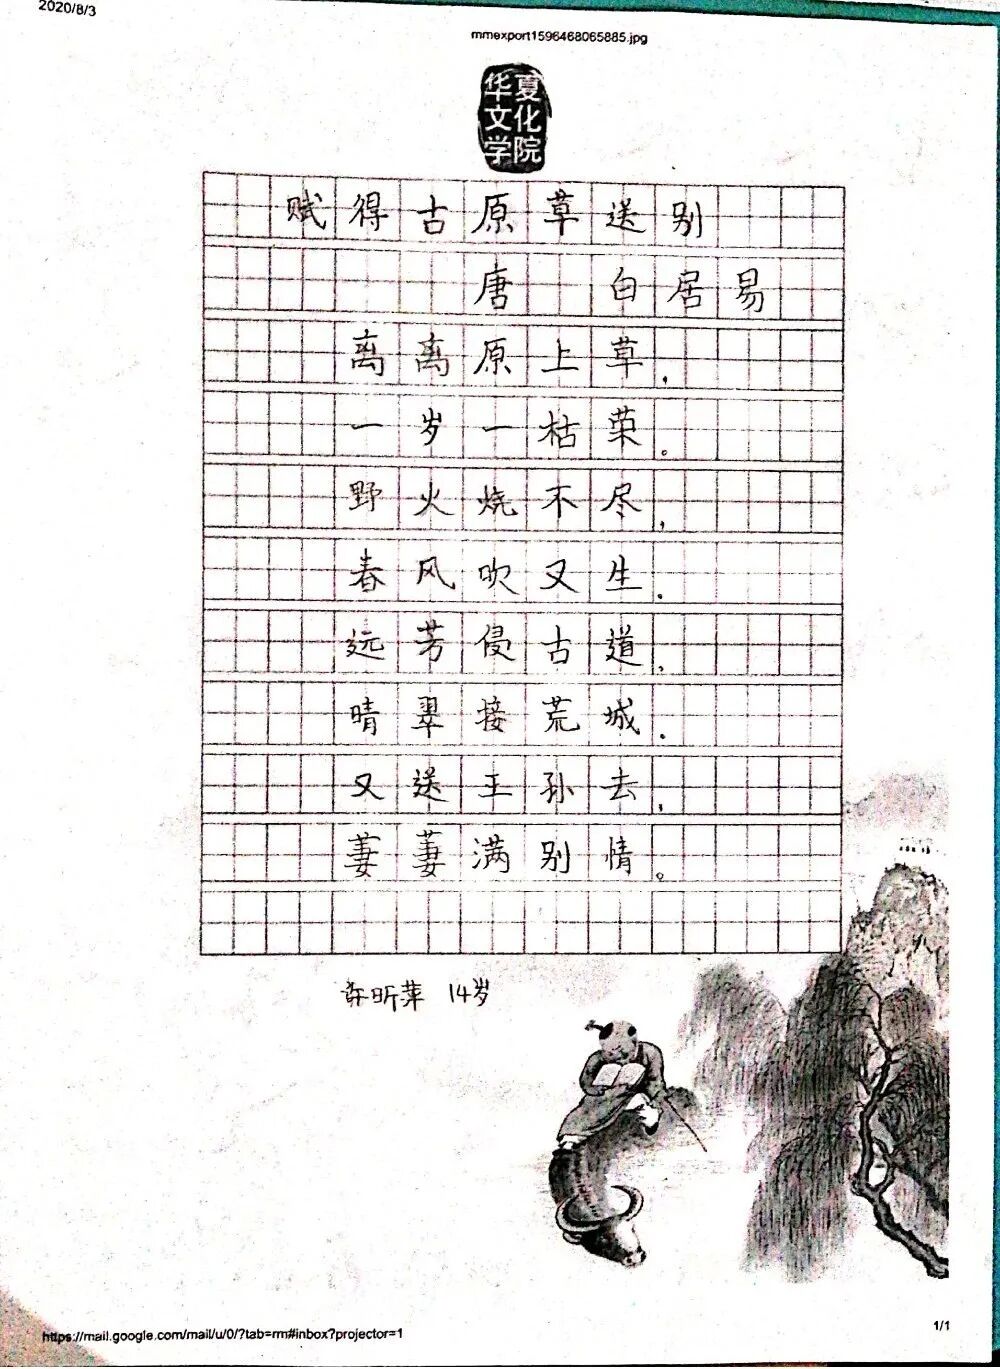 2020/8/3
mmexport1596468065885.jpg
华夏
文化
学院
赋得古原草送别
唐 白居易
离离原上草,
一岁一枯荣。
野火烧不尽,
春风吹又生.
远芳侵古道,
晴翠接荒城.
又送王孙去,
萋萋满别情。
昕萍 14岁
https://mail.google.com/mail/u/0/?tab=rm#inbox?projector=1
1/1